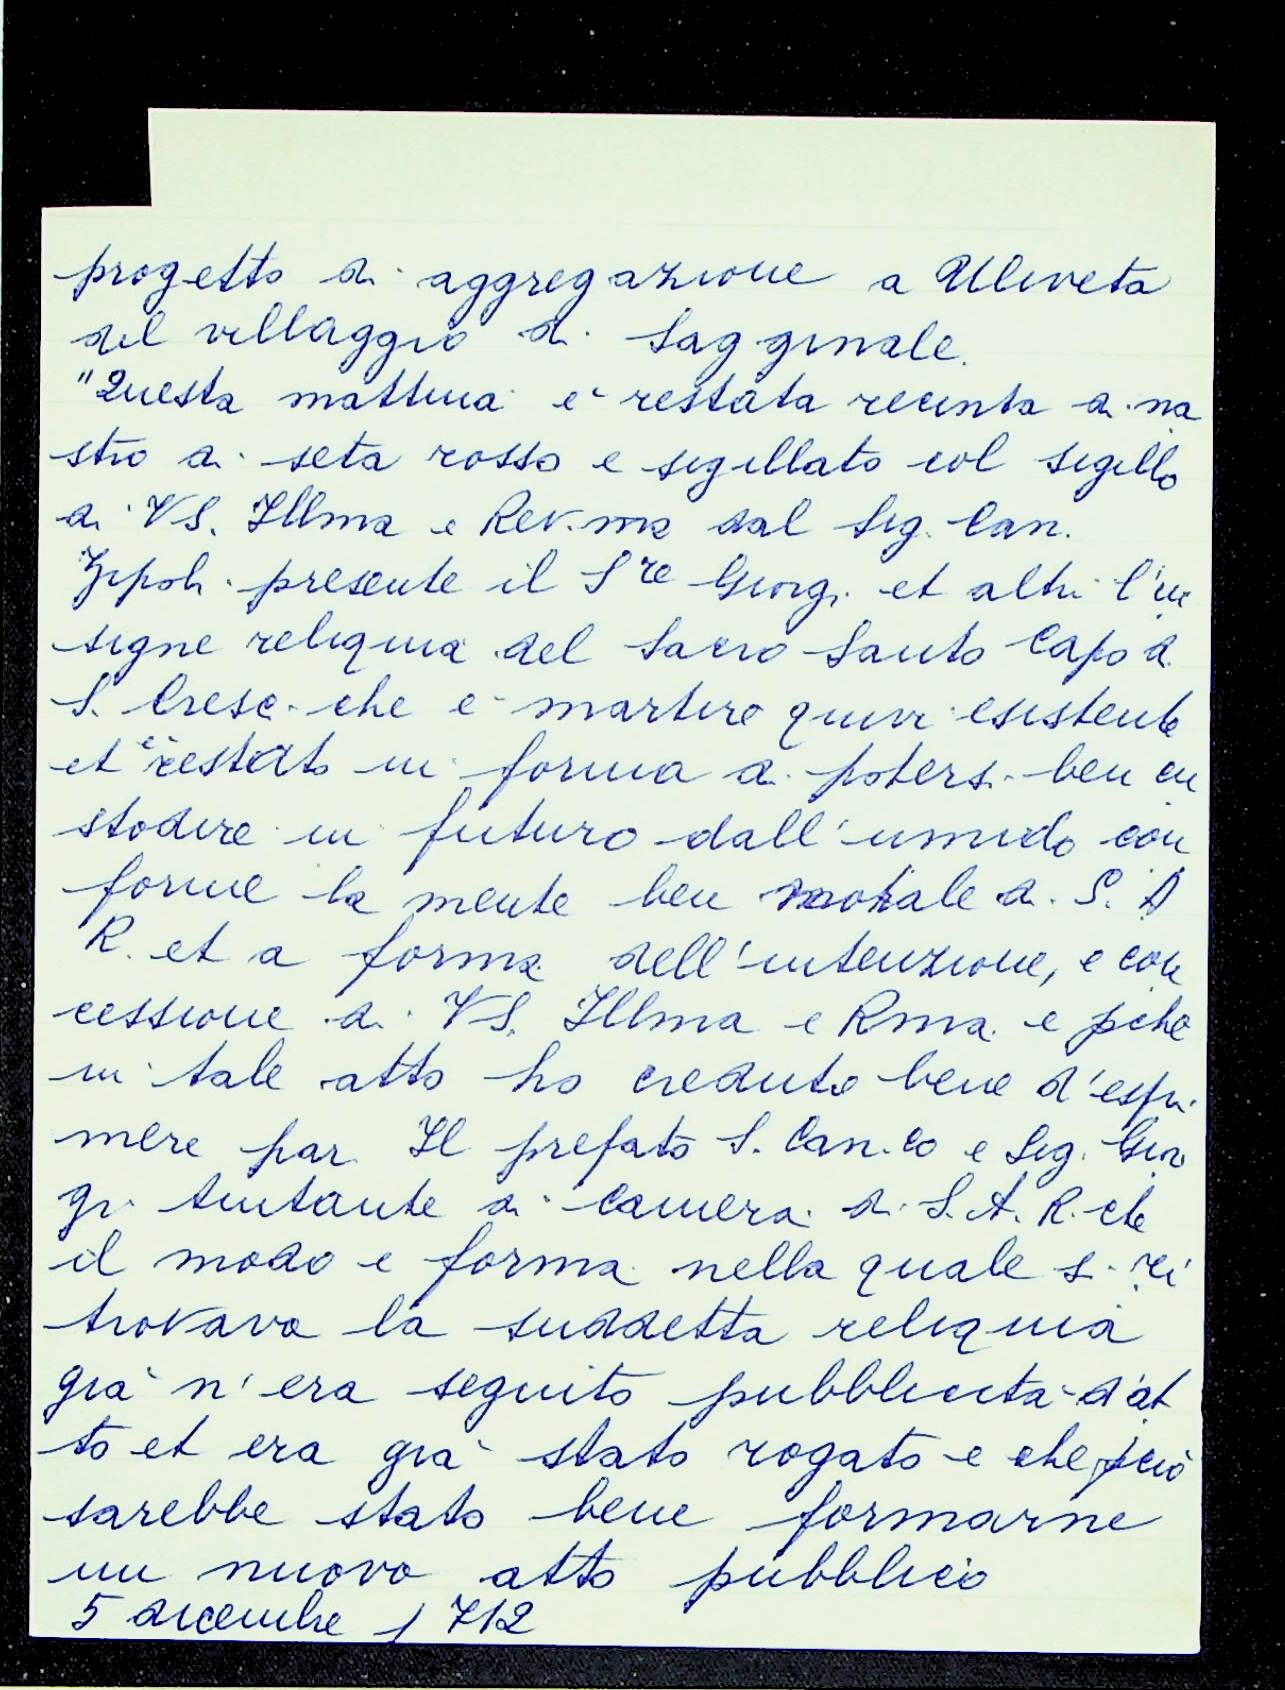 progetto di aggregazione a Uliveta
del villaggio di Sagginale.
"Questa mattina è restata recinta di na
stro di seta rosso e sigillato col sigillo
di VS. Illma e Rev.ma dal Sig. Can.
Zipoli presente il Sre Giorgi et altri l'in
signe reliquia del Sacro Santo Capo di
S. Cresci che è martire quivi esistente
et è restato in forma di potersi ben cu
stodire in futuro dall'umido con
forme la mente ben di S. A
R. et a forma dell'intenzione, e con
cessione di VS. Illma e Rma e pche
in tale atto ho creduto bene d'espri
mere par Il prefato S. Can.co e Sig. Gior
gi Aiutante di camera di S.A.R. che
il modo e forma nella quale si ri
trovava la suddetta reliquia
già n'era seguito pubblicità d'at
to et era già stato rogato e che pciò
sarebbe stato bene formarne
un nuovo atto pubblico
5 dicembre 1712